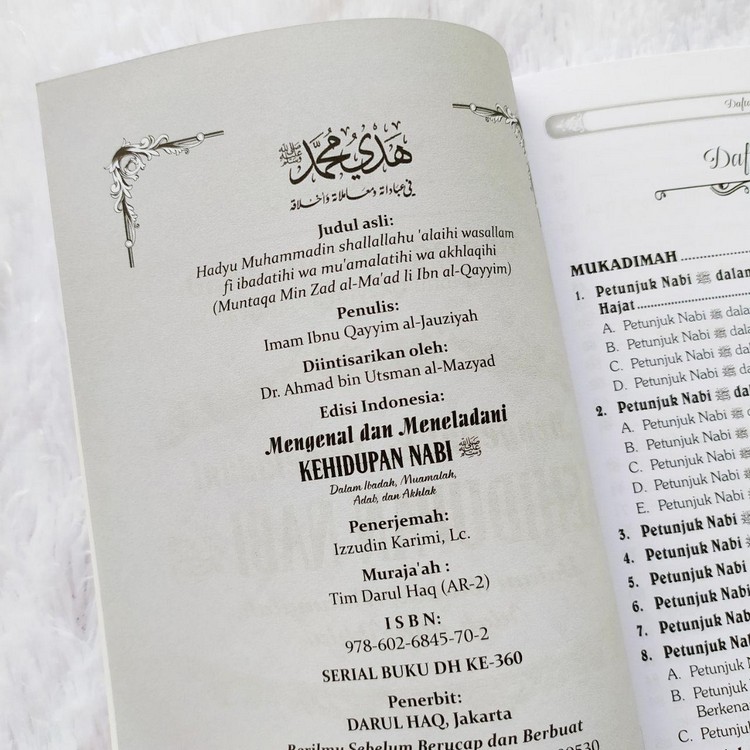 هدي محمد ﷺ
في عباداته ومعاملاته وأخلاقه
Judul asli:
Hadyu Muhammadin shallallahu 'alaihi wasallam
fi ibadatihi wa mu'amalatihi wa akhlaqihi
(Muntaqa Min Zad al-Ma'ad li Ibn al-Qayyim)
Penulis:
Imam Ibnu Qayyim al-Jauziyah
Diintisarikan oleh:
Dr. Ahmad bin Utsman al-Mazyad
Edisi Indonesia:
Mengenal dan Meneladani
KEHIDUPAN NABI ﷺ
Dalam Ibadah, Muamalah,
Adab, dan Akhlak
Penerjemah:
Izzudin Karimi, Lc.
Muraja'ah :
Tim Darul Haq (AR-2)
I S B N:
978-602-6845-70-2
SERIAL BUKU DH KE-360
Penerbit:
DARUL HAQ, Jakarta
Berilmu Sebelum Berucap dan Berbuat
MUKADIMAH
1. Petunjuk Nabi ﷺ dalam
Hajat
A. Petunjuk Nabi ﷺ
B. Petunjuk Nabi ﷺ
C. Petunjuk Nabi ﷺ
D. Petunjuk Nabi ﷺ
2. Petunjuk Nabi ﷺ
A. Petunjuk Nabi
B. Petunjuk Nabi ﷺ
C. Petunjuk Nabi ﷺ
D. Petunjuk Nabi ﷺ
E. Petunjuk Nabi ﷺ
3. Petunjuk Nabi ﷺ
4. Petunjuk Nabi
5. Petunjuk Nabi
6. Petunjuk Nabi
7. Petunjuk Nabi
8. Petunjuk Nabi
A. Petunjuk
B. Petunjuk
C. Petunjuk